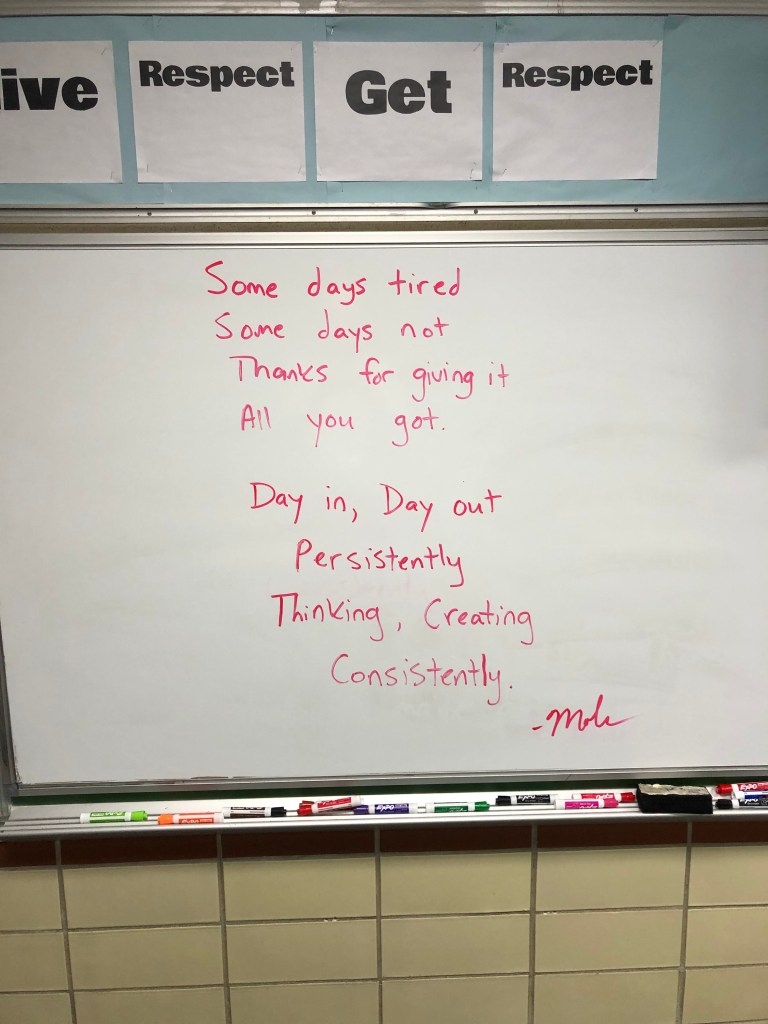 ive Respect Get Respect
Some days tired
Some days not
Thanks for giving it
All you got.
Day in, Day out
Persistently
Thinking, Creating
Consistently.
EXPO
EXPO
EXPO
EXPO